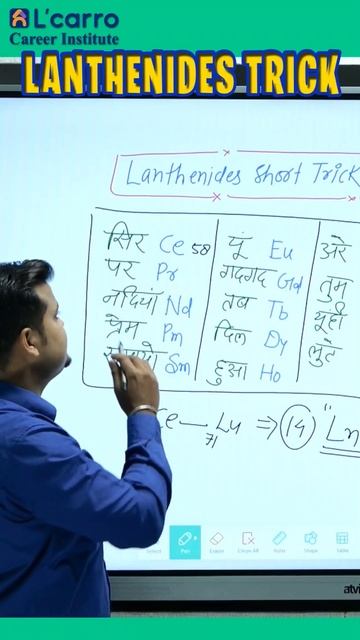 L'carro
Career Institute
LANTHENIDES TRICK
Lanthenides Short Trick
सिर Ce 58
पर Pr
नदियां Nd
प्रेम Pm
Sm
यूं Eu
गदगद Gd
तब Tb
दिल Dy
हुआ Ho
अरे
तुम
यूही
लुटे
Ce — Lu ⇒ 14 "Ln
71
Select Pen Eraser Clear All Ruler Shape Table